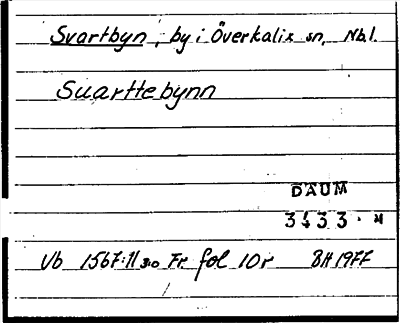 Svartbyn, by i Överkalix sn, Nbl.
Suarttebynn
DAUM
3433
Vb 1567:11 Fr fol 10r BH 1977